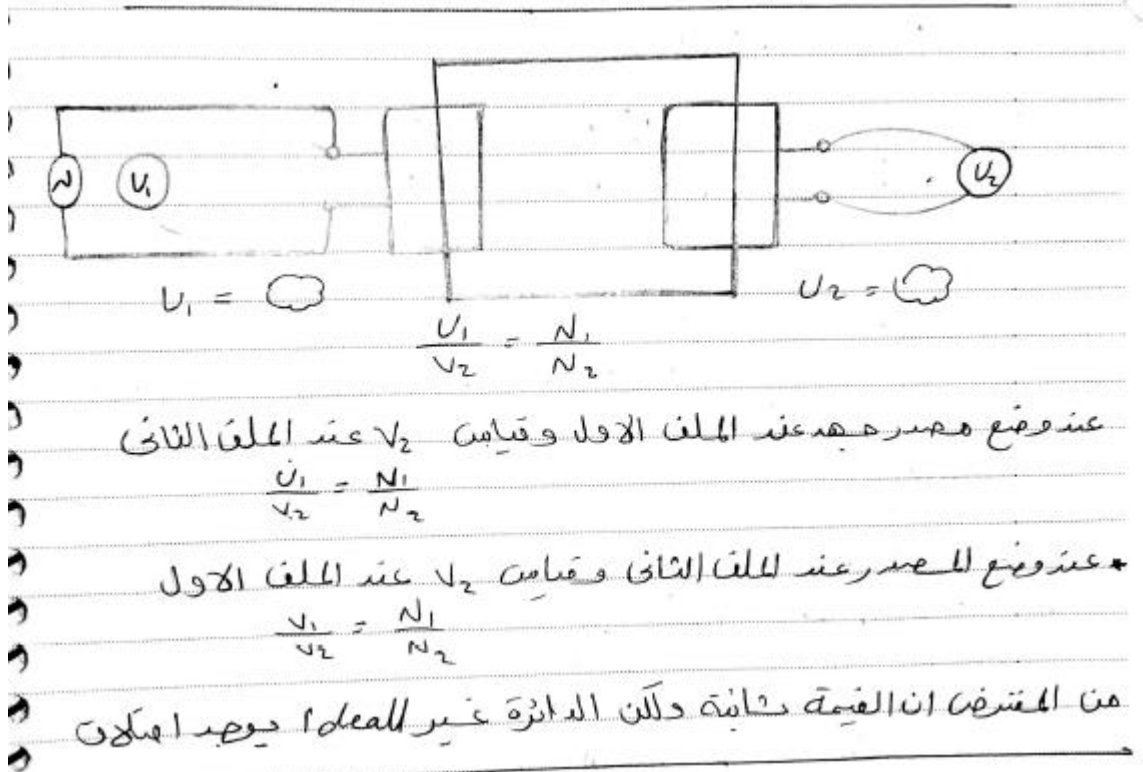 N V₁ V₂
U₁ = U₂ =
U₁/V₂ = N₁/N₂
عند وضع مصدر جهد عند الملف الاول وقياس V₂ عند الملف الثانى
U₁/V₂ = N₁/N₂
* عند وضع المصدر عند الملف الثانى وقياس V₂ عند الملف الاول
V₁/V₂ = N₁/N₂
من المفترض ان القيمة ثابتة ولكن الدائرة غير Ideall يوجد اختلاف